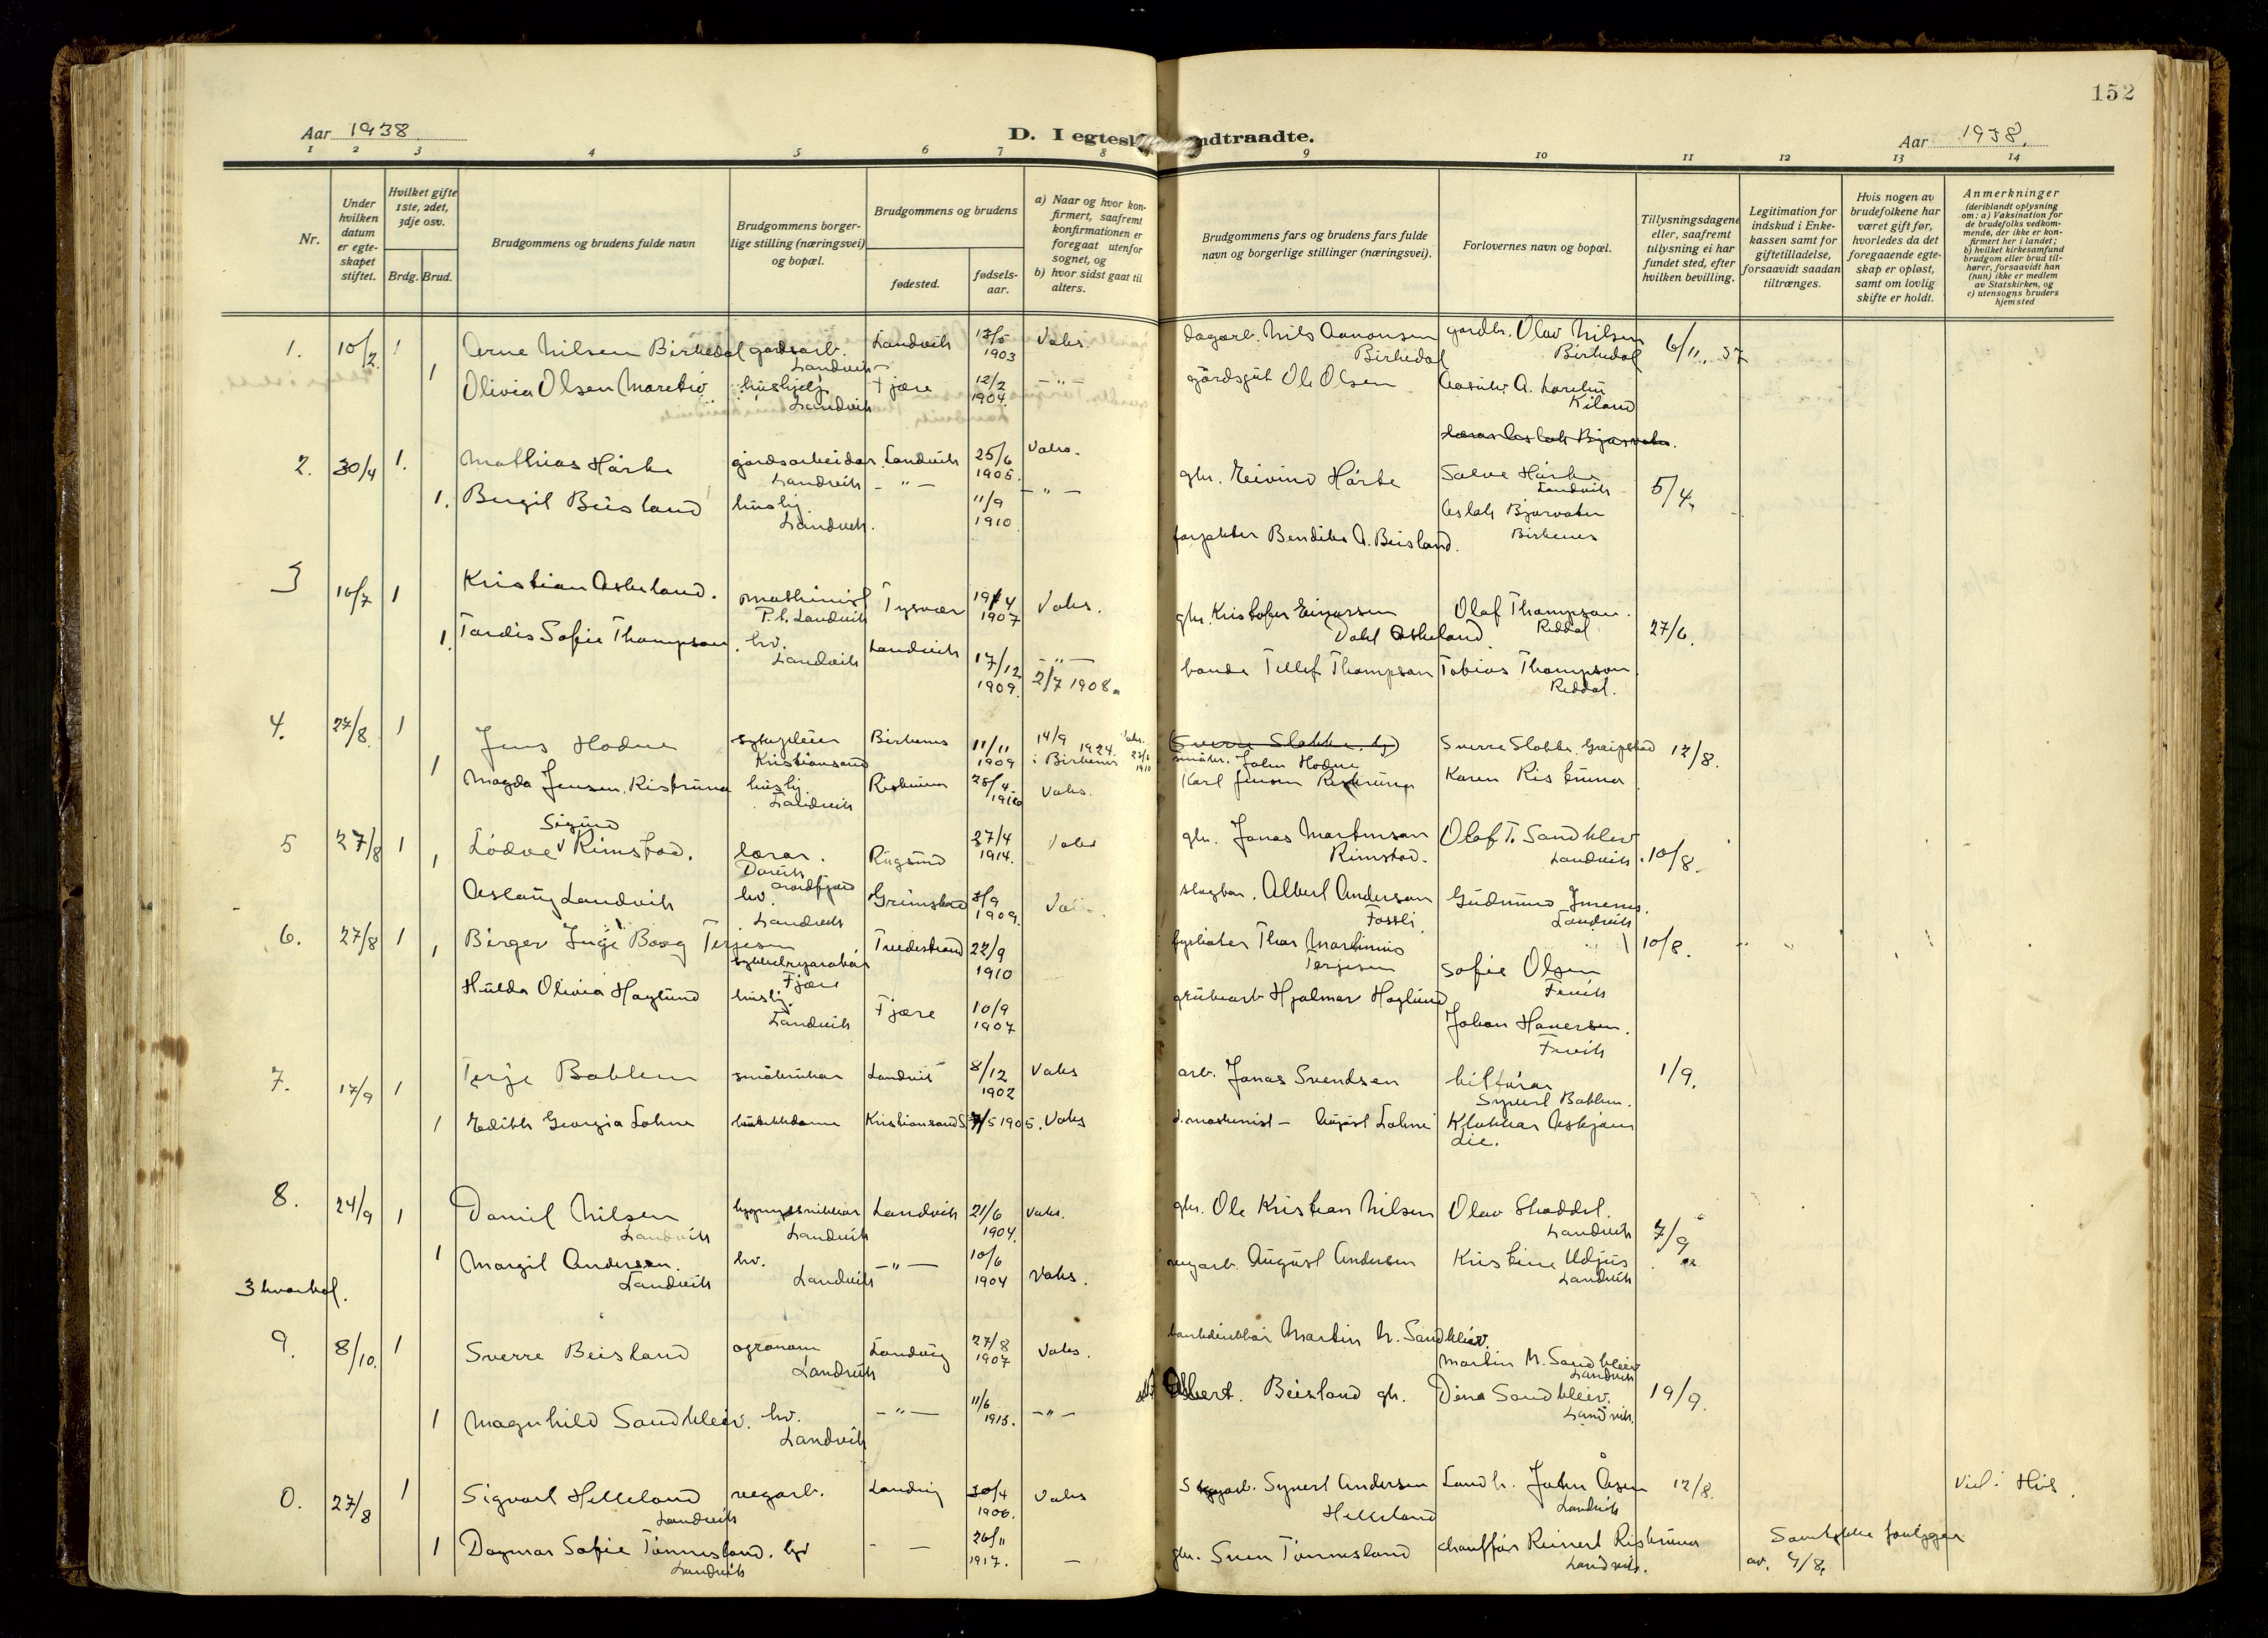 152
Aar 1938.
D. I egtesk ndtraadte.
Aar 1938.
1 2 3 4 5 6 7 8 9 10 11 12 13 14
Nr.
Under hvilken datum er egte-skapet stiftet.
Hvilket gifte 1ste, 2det, 3dje osv.
Brdg. Brud.
Brudgommens og brudens fulde navn
Brudgommens borger-lige stilling (næringsvei) og bopæl.
Brudgommens og brudens
fødested.
fødsels-aar.
a) Naar og hvor kon-firmert, saafremt konfirmationen er foregaat utenfor sognet, og
b) hvor sidst gaat til alters.
Brudgommens fars og brudens fars fulde navn og borgerlige stillinger (næringsvei).
Forlovernes navn og bopæl.
Tillysningsdagene eller, saafremt tillysning ei har fundet sted, efter hvilken bevilling.
Legitimation for indskud i Enke-kassen samt for giftetilladelse, forsaavidt saadan tiltrænges.
Hvis nogen av brudefolkene har været gift før, hvorledes da det foregaaende egte-skap er opløst, samt om lovlig skifte er holdt.
Anmerkninger
(deriblandt oplysning om: a) Vaksination for de brudefolks vedkom-mende, der ikke er kon-firmert her i landet;
b) hvilket kirkesamfund brudgom eller brud til-hører, forsaavidt han (hun) ikke er medlem av Statskirken, og
c) utensogns bruders hjemsted
1. 10/2 1 Arne Nilsen Birkedal gardsarb. Landvik Landvik 1903 Vaks. dagarb. Nils Aanonsen Birkedal gardbr. Olav Nilsen Birkedal 6/11 37
1 Olivia Olsen hushjelp Landvik Fjære 12/2 1904 – " – Ole Olsen Kiland
2. 30/4 1. Mathias Hårte gardsarbeidar Landvik Landvik 25/6 1905. Vaks. gbr. Eivind Hårte Salve Hårte Landvik 5/4
1. Bergit Beisland hushj. Landvik. – " – 11/9 1910 – " – forpakter Bendiks A. Beisland. Aslak Bjorvatn Birkenes
3 10/7 1 Kristian Askeland. maskinist P.t. Landvik Tysvær 19/4 1907 Vaks. gbr. Kristofer Einarsen Dahl Askeland Olaf Thompson. Reddal 27/6.
1. Tordis Sofie Thompson. hv. Landvik Landvik 17/12 1909. – " – 2/7 1908. bonde Tellef Thompson Tobias Thompson Reddal.
4. 27/8 1 Jens Hodne sykepleier Kristiansand Birkenes 11/11 1909 14/9 1924 i Birkenes John Hodne Sverre Slakke Grimstad 12/8.
1 Magda Jensen Riskruna hushj. Landvik 28/4 1910 Vaks. Karl Jensen Karen
5 27/8 1 Lodve Sigurd Rimstad. lærar. Davik Rugsund 27/4 1914. Vaks gbr. Jonas Martinson Rimstad. Olaf T. Sandkleiv Landvik. 10/8.
1 Aslaug Landvik hv. Landvik Grimstad 3/9 1909. slagter. Albert Anderson Fossli. Gudmund Landvik
6. 27/8 1 Birger Inge Boog Terjesen Fjære Tvedestrand 22/9 1910 Thor Martinius Terjesen Sofie Olsen Fevik 10/8.
1 Hulda Olivia Haglund hushj. Landvik Fjære 10/9 1907 Hjalmar Haglund Johan Fevik
7. 17/9 1 Terje Boklem småbrukar Landvik 8/12 1902 Vaks arb. Jonas Svendsen Synert Boklem. 1/9.
1 Edith Georgia Lohne Kristiansand S 7/5 1905. Vaks d. maskinist – August Lohne Klokkar Askjær Lie.
8. 24/9 1 Daniel Nilsen Landvik bygningssnikkar Landvik Landvik 21/6 1904. Vaks. gbr. Ole Kristian Nilsen Olav Skoddal. Landvik 7/9
1 Margit Andersen. Landvik hv. Landvik – " – 10/6 1904 Vaks. vegarb. August Andersen Kristine Udjus Landvik
3 kvartal.
9. 8/10. 1 Sverre Beisland agronom Landvik Landvig 27/8 1907 Vaks. Martin N. Sandkleiv. Martin N. Sandkleiv Landvik
1 Magnhild Sandkleiv. hv. Landvik – " – 11/6 1915. – " – Albert. Beisland gbr. Dina Sandkleiv. Landvik. 19/9.
0. 27/8 1 Sigvart Helleland Landvik vegarb. Landvig 30/4 1906. Vaks Synert Andersen Helleland Landh. John Åsen Landvik 12/8. Viet i His.
1 Dagmar Sofie Tønnesland. Landvik hv – – 26/11 1917. – gbr. Sven Tønnesland chauffør Reinert Landvik. Samtykke foreligger av. 4/8.